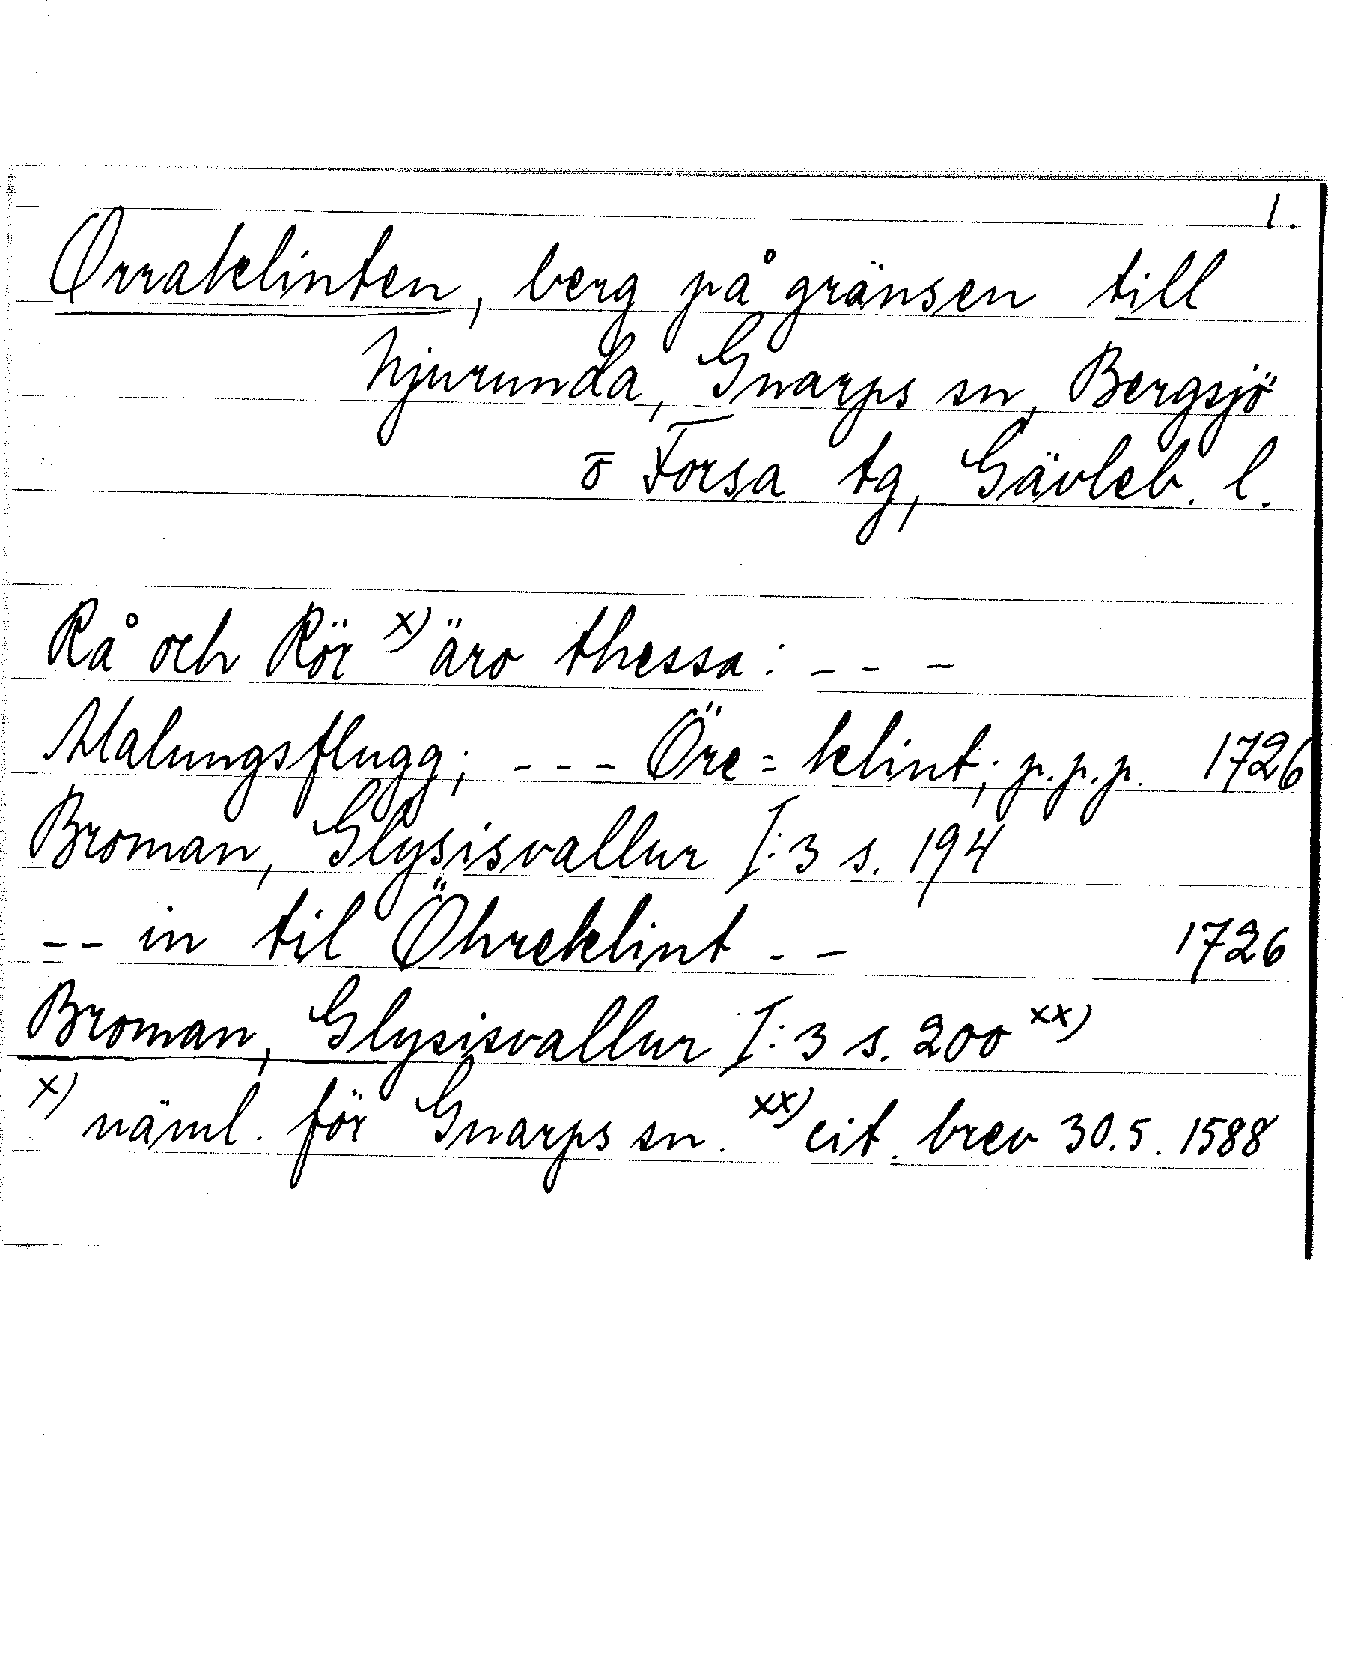 1.
Orraklinten, berg på gränsen till
Njurunda, Gnarps sn, Bergsjö
o Forsa tg, Gävleb. l.
Rå och Rör x) äro thessa: - - -
Malungsflugg; - - - Öre=klint; p.p.p. 1726
Broman, Glysisvallur I:3 s. 194
-- in til Öhreklint - - 1726
Broman, Glysisvallur I:3 s. 200 xx)
x) näml. för Gnarps sn. xx) cit. brev 30.5. 1588